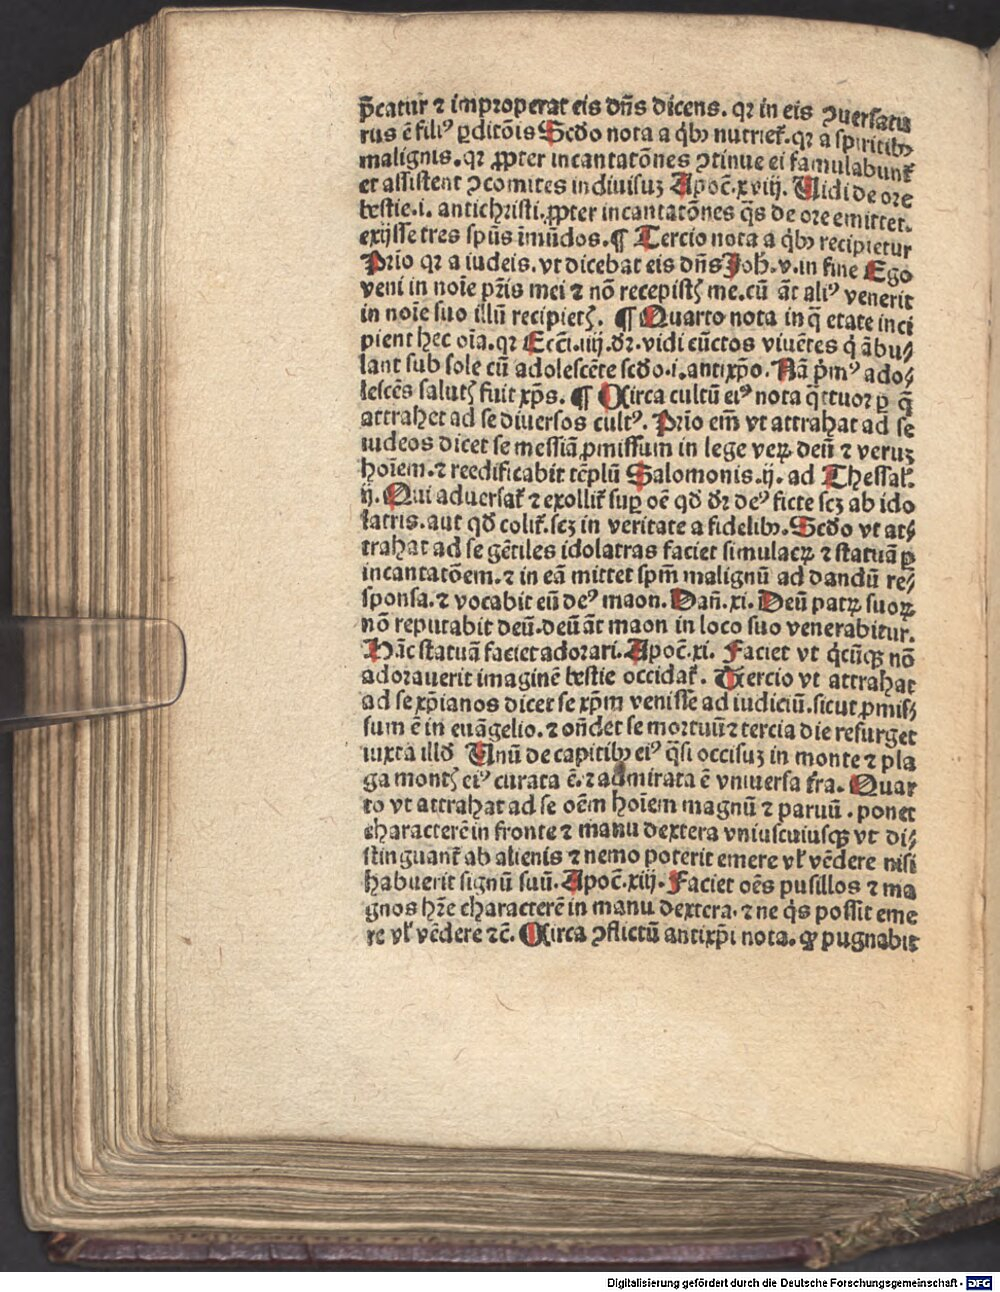 p̄catur ⁊ improperat eis dn̄s dicens. qꝛ in eis ꝯuersatu
rus ē filiꝰ ꝑditōis Scd̄o nota a qͥbꝫ nutrieť. qꝛ a spiritibꝫ
malignis. qꝛ ꝓpter incantatōnes ꝯtinue ei famulabunť
et assistent ꝯcomites indiuisuꝫ Apoc̄. xviij. Uidi de ore
bestie .i. antichristi. ꝓpter incantatōnes q̄s de ore emittet.
exijsse tres spūs īmūdos. ¶ Tercio nota a qͥbꝫ recipietur
Prīo qꝛ a iudeis. vt dicebat eis dn̄s Joh̄. v. in fine Ego
veni in noīe pr̄is mei ⁊ nō recepistꝭ me. cū āt aliꝰ venerit
in noīe suo illū recipietꝭ. ¶ Quarto nota in q̄ etate inci
pient hec oīa. qꝛ Ecc̄i. iiij. dꝛ. vidi cūctos viuētes qͥ ābu⸗
lant sub sole cū adolescēte scd̄o .i. antixp̄o. Nā pͥmꝰ ado⸗
lescēs salutꝭ fuit xp̄s. ¶ Circa cultū eiꝰ nota qͣttuor ꝑ q̄
attrahet ad se diuersos cultꝰ. Prīo em̄ vt attrahat ad se
iudeos dicet se messiā ꝓmissum in lege veꝝ deū ⁊ veruꝫ
hoīem. ⁊ reedificabit tēplū Salomonis. ij. ad Thessaľ.
ij. Qui aduersať ⁊ exolliť suꝑ oē qd̄ dꝛ deꝰ ficte scꝫ ab ido
latris. aut qd̄ coliť. scꝫ in veritate a fidelibꝫ. Scd̄o vt at⸗
trahat ad se gētiles idolatras faciet simulacꝝ ⁊ statuā ꝑ
incantatōem. ⁊ in eā mittet spm̄ malignū ad dandū re⸗
sponsa. ⁊ vocabit eū deꝰ maon. Dan̄. xi. Deū patꝝ suoꝝ
nō reputabit deū. deū āt maon in loco suo venerabitur.
Hāc statuā faciet adorari. Apoc̄. xi. Faciet vt qͥcūqꝫ nō
adorauerit imaginē bestie occidať. Tercio vt attrahat
ad se xp̄ianos dicet se xp̄m venisse ad iudiciū. sicut ꝓmis⸗
sum ē in euāgelio. ⁊ on̄det se mortuū ⁊ tercia die resurget
iuxta illd̄ Unū de capitibꝫ eiꝰ qͣsi occisuꝫ in monte ⁊ pla
ga montꝭ eiꝰ curata ē. ⁊ admirata ē vniuersa tr̄a. Quar
to vt attrahat ad se oēm hoīem magnū ⁊ paruū. ponet
characterē in fronte ⁊ manu dextera vniuscuiusqꝫ vt di⸗
stinguanť ab alienis ⁊ nemo poterit emere vľ vēdere nisi
habuerit signū suū. Apoc̄. xiij. Faciet oēs pusillos ⁊ ma
gnos hr̄e characterē in manu dextera. ⁊ ne qͥs possit eme
re vľ vēdere ⁊c̄. Circa ꝯflictū antixp̄i nota. ꝙ pugnabit
Digitalisierung gefördert durch die Deutsche Forschungsgemeinschaft - DFG